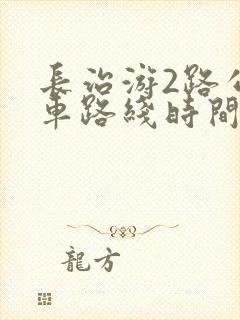 長治游2路公
車路綫時間
龍方